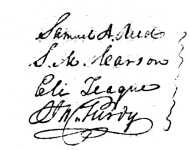 Samuel A. Reed
S. M. Pearson
Eli Teague
H. W. Purdy